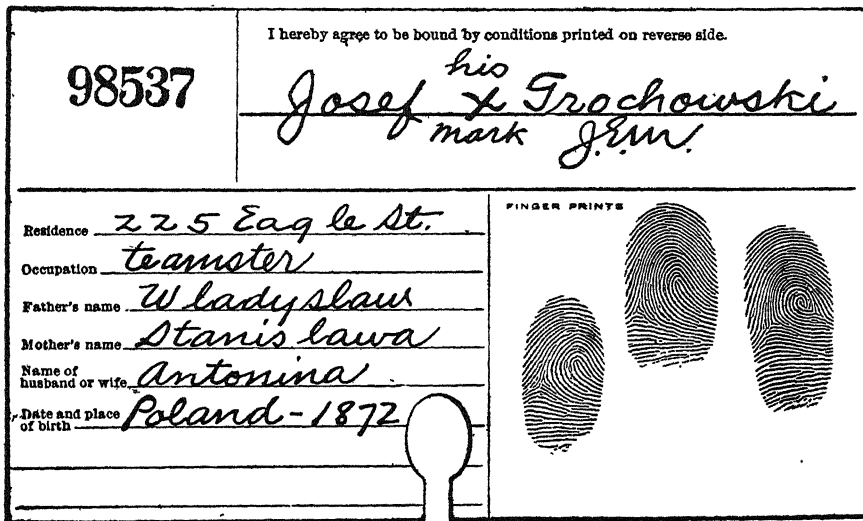 98537
I hereby agree to be bound by conditions printed on reverse side.
his
Josef x Grochowski
mark J.E.W.
Residence 225 Eagle St.
Occupation teamster
Father's name Wladyslaw
Mother's name Stanislawa
Name of husband or wife Antonina
Date and place of birth Poland - 1872
FINGER PRINTS